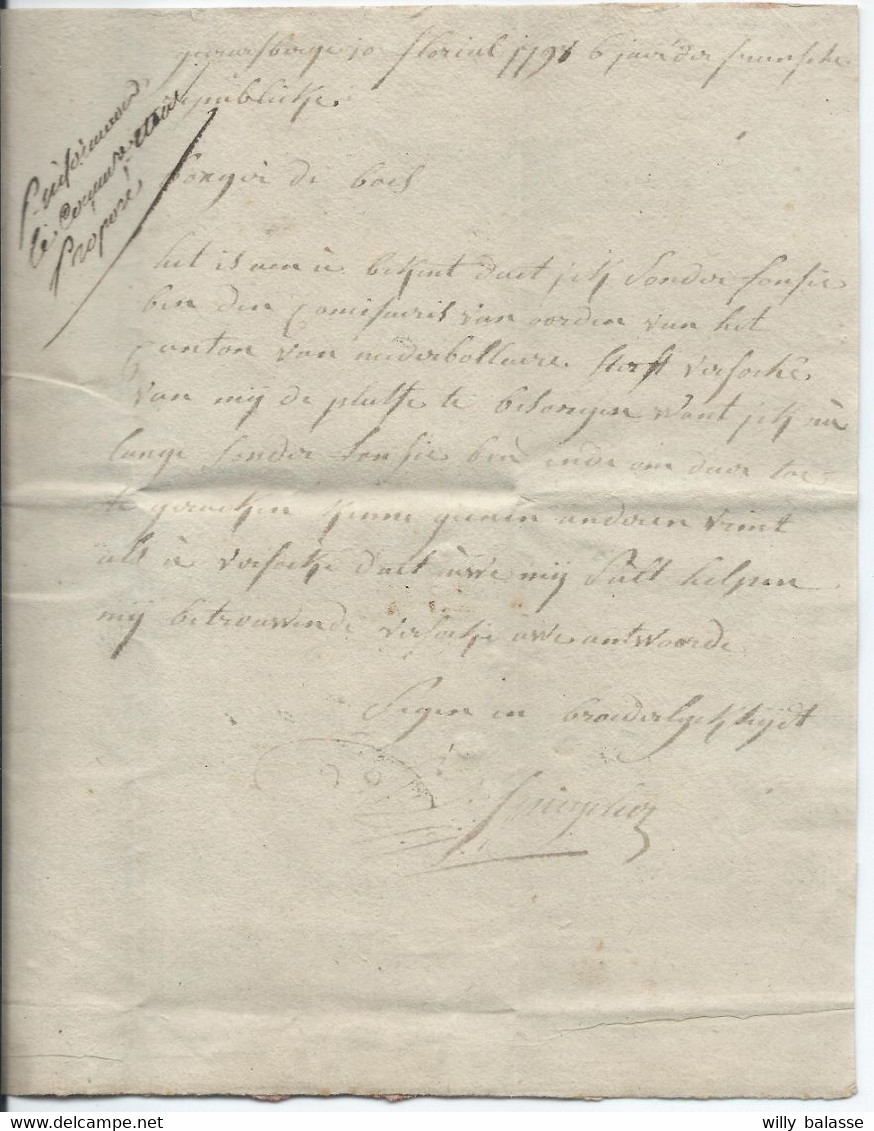 geraersberge 10 florial 1798 6 jaer der fransche
republicke
borger de boel
P. informeerd
le Commissaire
Proposé
het is aen u bekent daet jck sonder fonsie
ben den comisaeris van oorden van het
canton van nederbollaere sterft versoeke
van mij de plaese te besorgen want jck nu
lange sonder fonsie ben ende om daer toe
te geraeken kenne geenen anderen vrint
als u versoeke daet uwe mij sult helpen
mij betrouwende versoeke uwe antwoorde
segen en broederlyckhijdt
willy balasse